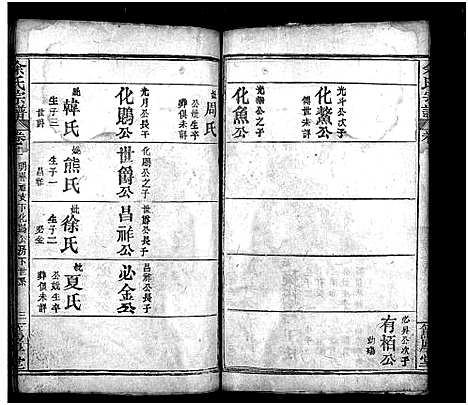 光斗公次子
化鰲公
傳世未詳
光燦公之子
化魚公
化昇公次子
有栢公
幼殤
妣周氏
公妣生卒
葬俱未詳
光月公長子
化鵰公
妣韓氏
生子一
世爵
化鵰公之子
世爵公
妣熊氏
生子一
昌祥
世爵公長子
昌祥公
妣徐氏
生子二
必金
昌祥公長子
必金公
妣夏氏
公妣生卒
葬俱未詳
余氏宗譜
三